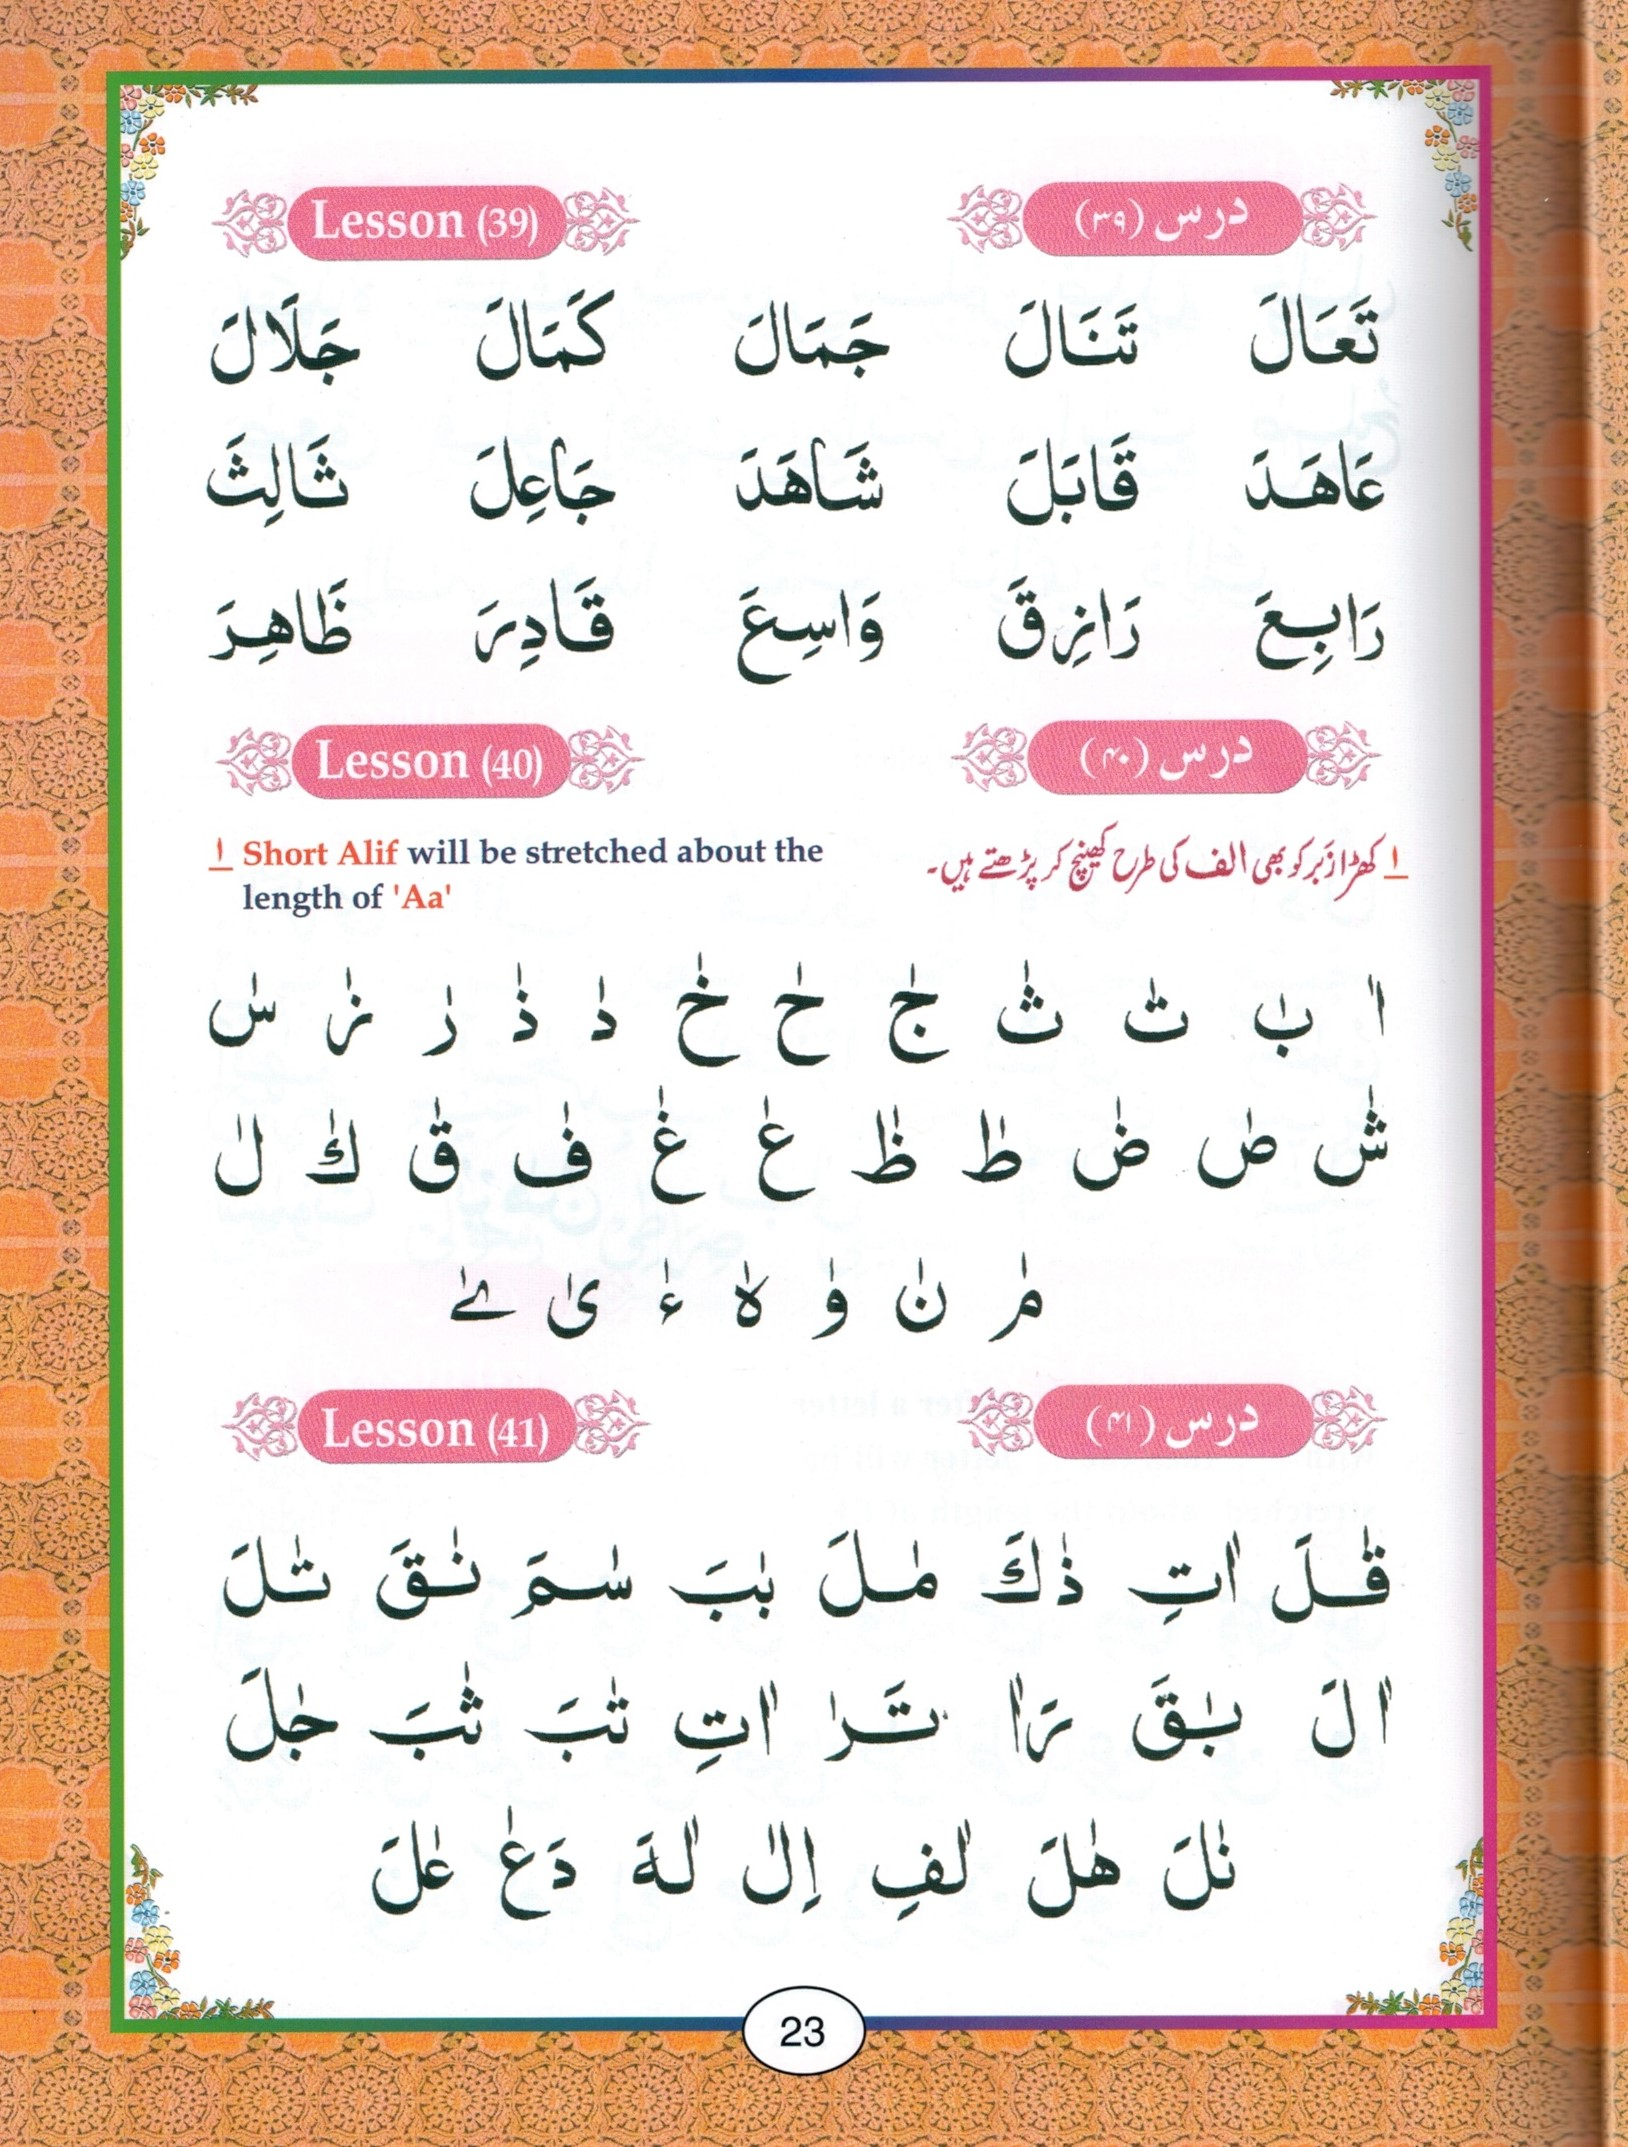 Lesson (39) درس (۳۹)
تَعَالَ تَنَالَ جَمَالَ كَمَالَ جَلَالَ
عَاهَدَ قَابَلَ شَاهَدَ جَاعِلَ ثَالِثَ
رَابِعَ رَازِقَ وَاسِعَ قَادِرَ ظَاهِرَ
Lesson (40) درس (۴۰)
ا Short Alif will be stretched about the
length of 'Aa'
ا کھڑا زَبر کو بھی الف کی طرح کھینچ کر پڑھتے ہیں۔
اٰ بٰ تٰ ثٰ جٰ حٰ خٰ دٰ ذٰ رٰ زٰ سٰ
شٰ صٰ ضٰ طٰ ظٰ عٰ غٰ فٰ قٰ كٰ لٰ
مٰ نٰ وٰ هٰ ءٰ یٰ ےٰ
Lesson (41) درس (۴۱)
قٰلَ اٰتِ ذٰكَ مٰلَ بٰبَ سٰمَ نٰقَ تٰلَ
اٰلَ بٰقَ رَاٰ تَرٰ اٰتِ تٰبَ ثٰبَ جٰلَ
نٰلَ هٰلَ لٰفِ اِلٰ لٰهَ دَعٰ عٰلَ
23